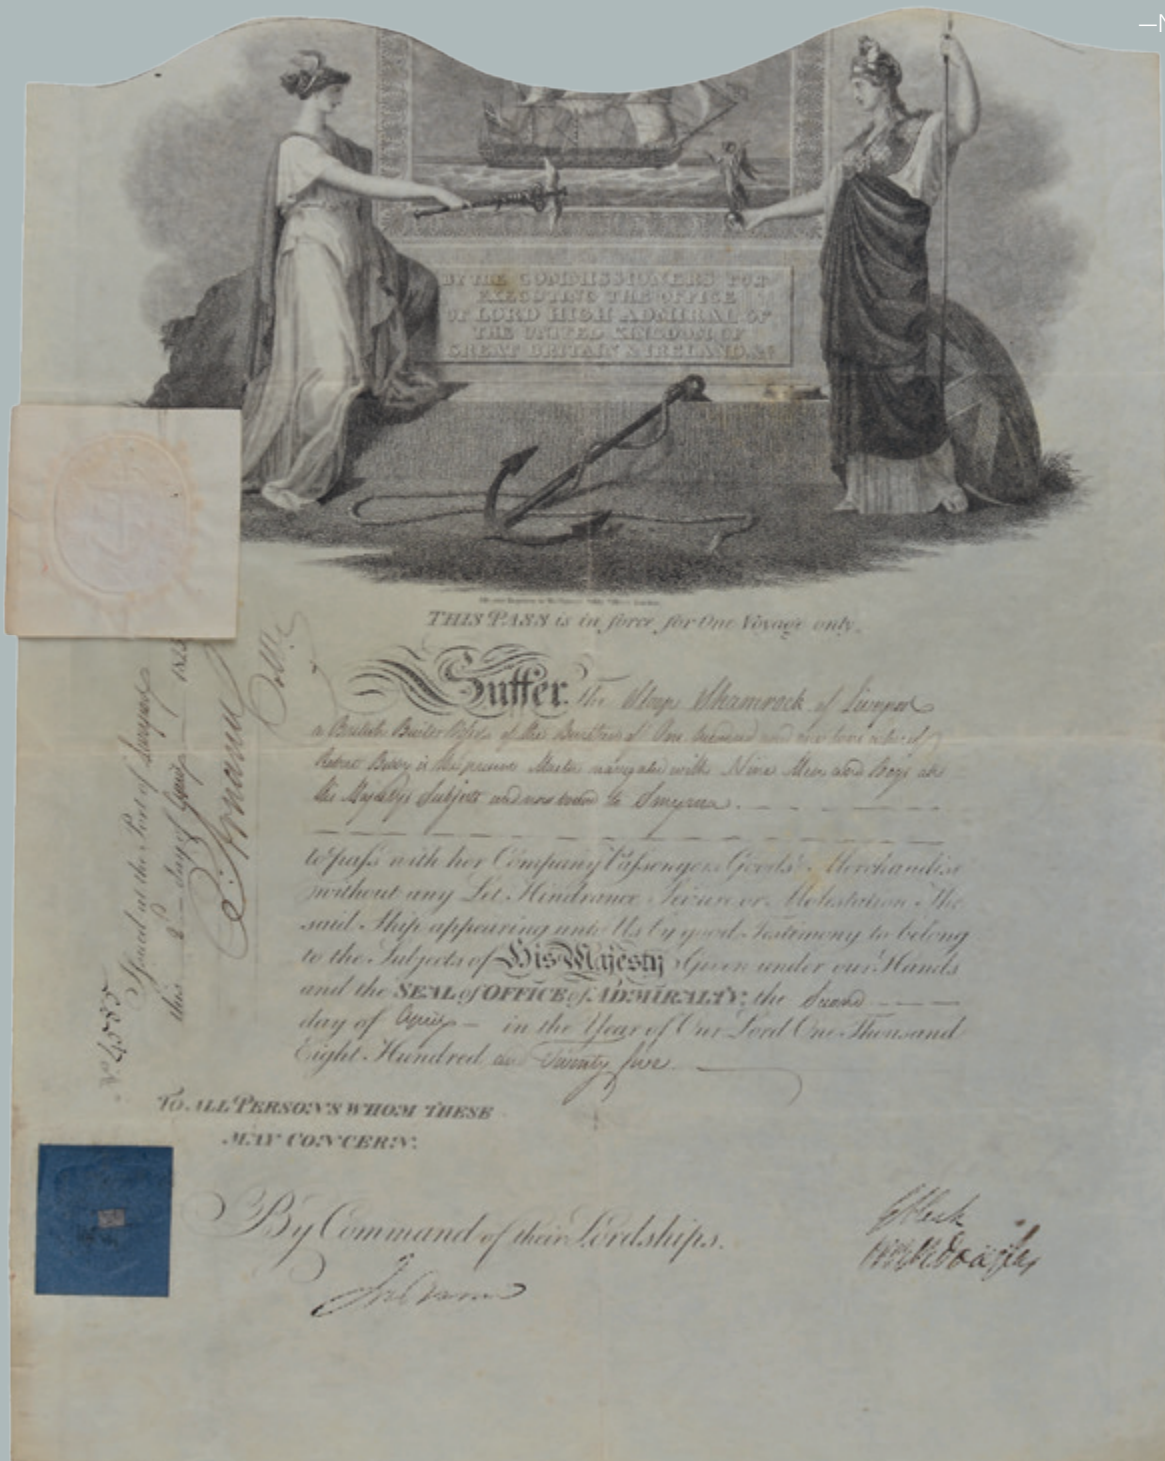 —N
BY THE COMMISSIONERS FOR
EXECUTING THE OFFICE
OF LORD HIGH ADMIRAL OF
THE UNITED KINGDOM OF
GREAT BRITAIN & IRELAND, &c
THIS PASS is in force for One Voyage only.
Suffer the Sloop Shamrock of Liverpool
a British Built Vessel of the Burthen of One hundred and
Robert Berry is the present Master navigated with Nine Men and Boys all
His Majesty's Subjects and now bound to Smyrna.
to pass with her Company Passengers Goods & Merchandise
without any Let Hindrance Seizure or Molestation The
said Ship appearing unto Us by good Testimony to belong
to the Subjects of His Majesty Given under our Hands
and the SEAL of OFFICE of ADMIRALTY, the Second
day of April in the Year of Our Lord One Thousand
Eight Hundred and Twenty five.
TO ALL PERSONS WHOM THESE
MAY CONCERN.
By Command of their Lordships.
Issued at the Port of Liverpool
this 2 day of April 1825
Collr